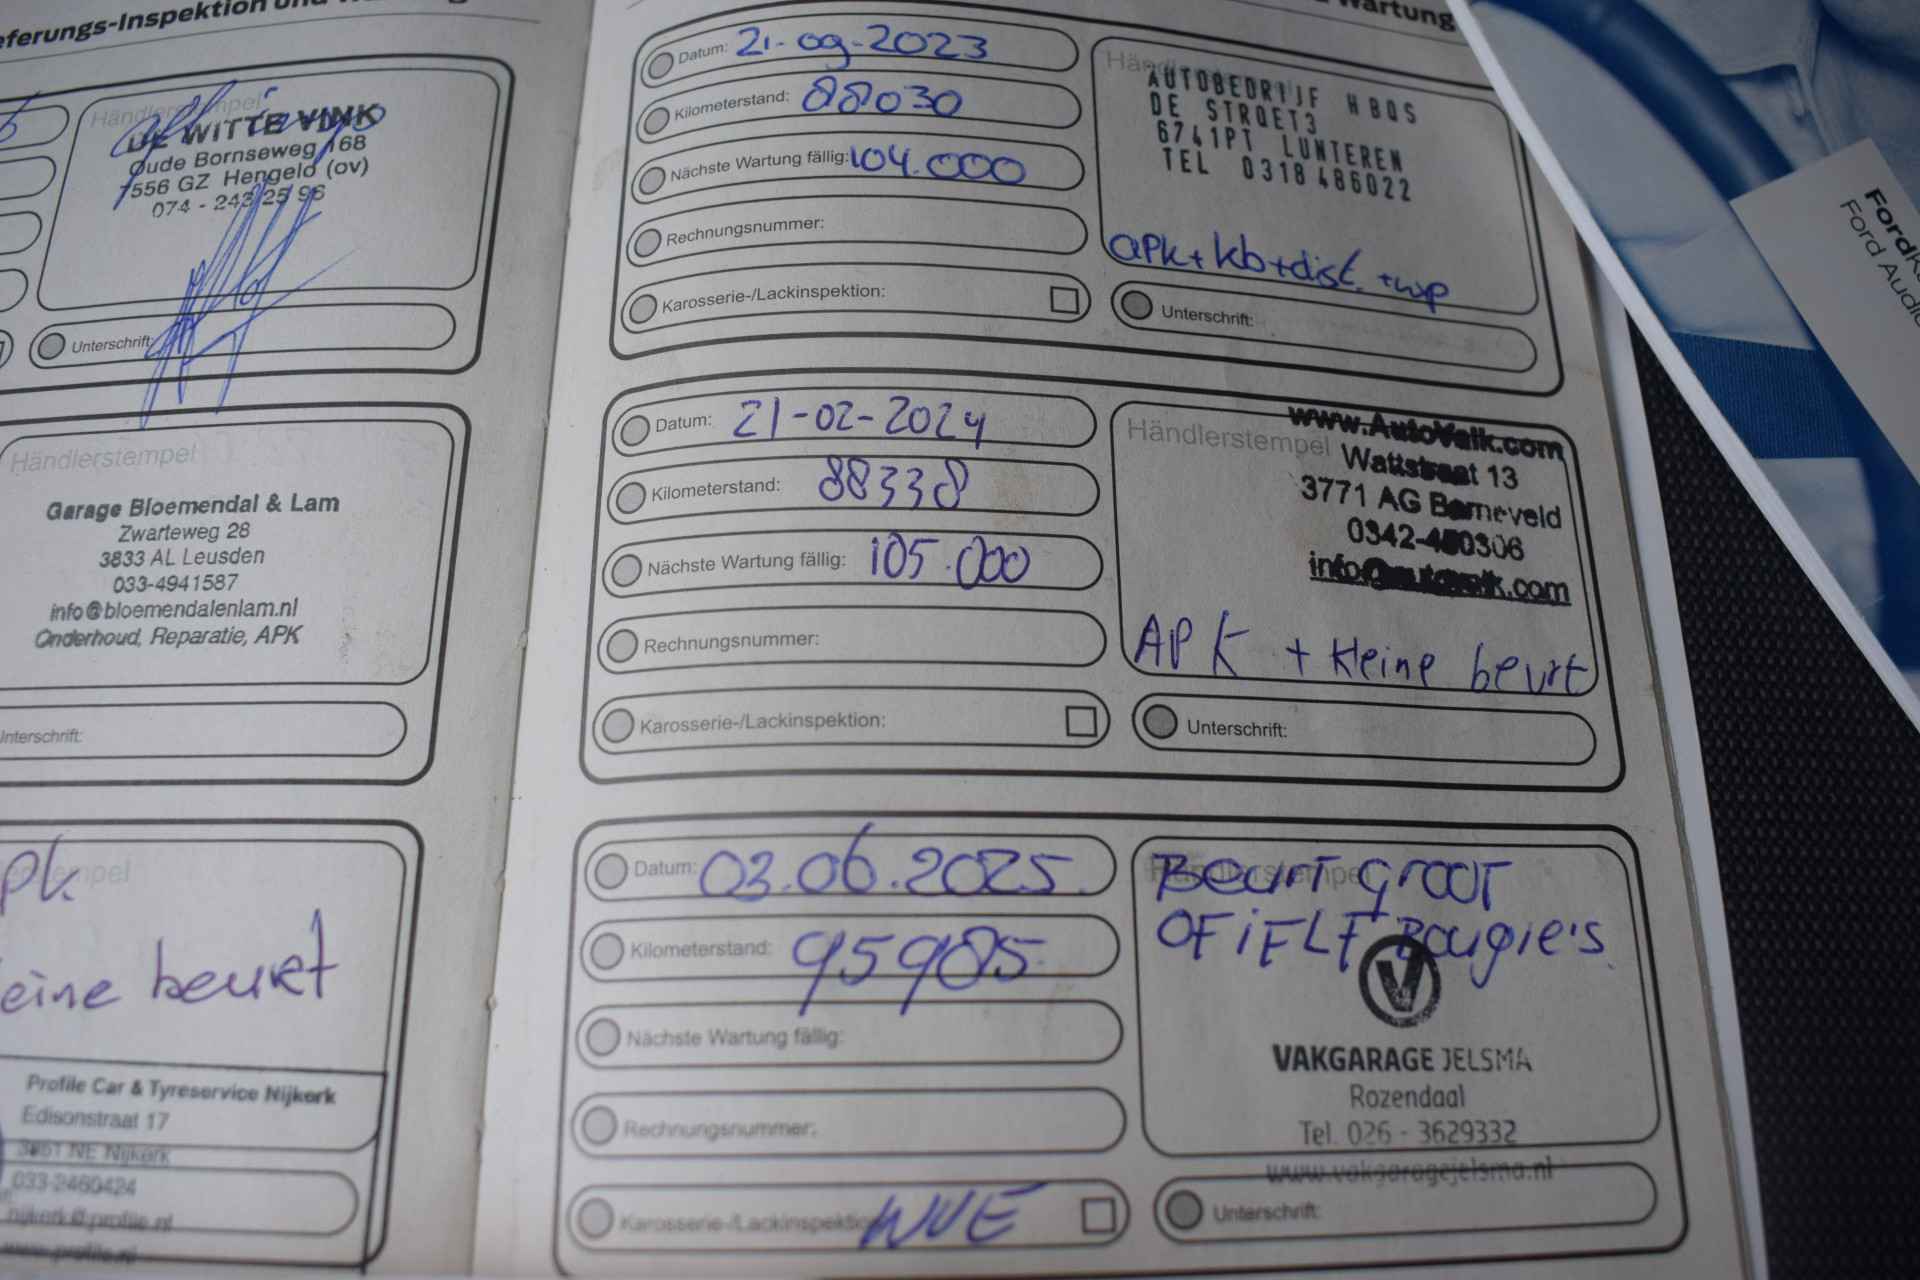 eferungs-Inspektion und
Händlerstempel
DE WITTE VINK
Oude Bornseweg 168
7556 GZ Hengelo (ov)
074 - 243 25 96
Unterschrift:
Händlerstempel
Garage Bloemendal & Lam
Zwarteweg 28
3833 AL Leusden
033-4941587
info@bloemendalenlam.nl
Onderhoud, Reparatie, APK
Unterschrift:
eine beurt
Profile Car & Tyreservice Nijkerk
Edisonstraat 17
3861 NE Nijkerk
033-2460424
nijkerk@profile.nl
www.profile.nl
Wartung
Datum: 21-09-2023
Kilometerstand: 88030
Nächste Wartung fällig: 104.000
Rechnungsnummer:
Karosserie-/Lackinspektion:
AUTOBEDRIJF HBOS
DE STROET3
6741PT LUNTEREN
TEL 0318 486022
apk+kb+dist. +wp
Unterschrift:
Datum: 21-02-2024
Kilometerstand: 88338
Nächste Wartung fällig: 105.000
Rechnungsnummer:
Karosserie-/Lackinspektion:
Händlerstempel
www.AutoValk.com
Wattstraat 13
3771 AG Barneveld
0342-450306
APK + kleine beurt
Unterschrift:
Datum: 03.06.2025.
Kilometerstand: 95985
Nächste Wartung fällig:
Rechnungsnummer:
Karosserie-/Lackinspektion
Händlerstempel
Beurt groot
OFiFLF Bougie's
V
VAKGARAGE JELSMA
Rozendaal
Tel. 026 - 3629332
www.vakgaragejelsma.nl
Unterschrift:
Ford Audio